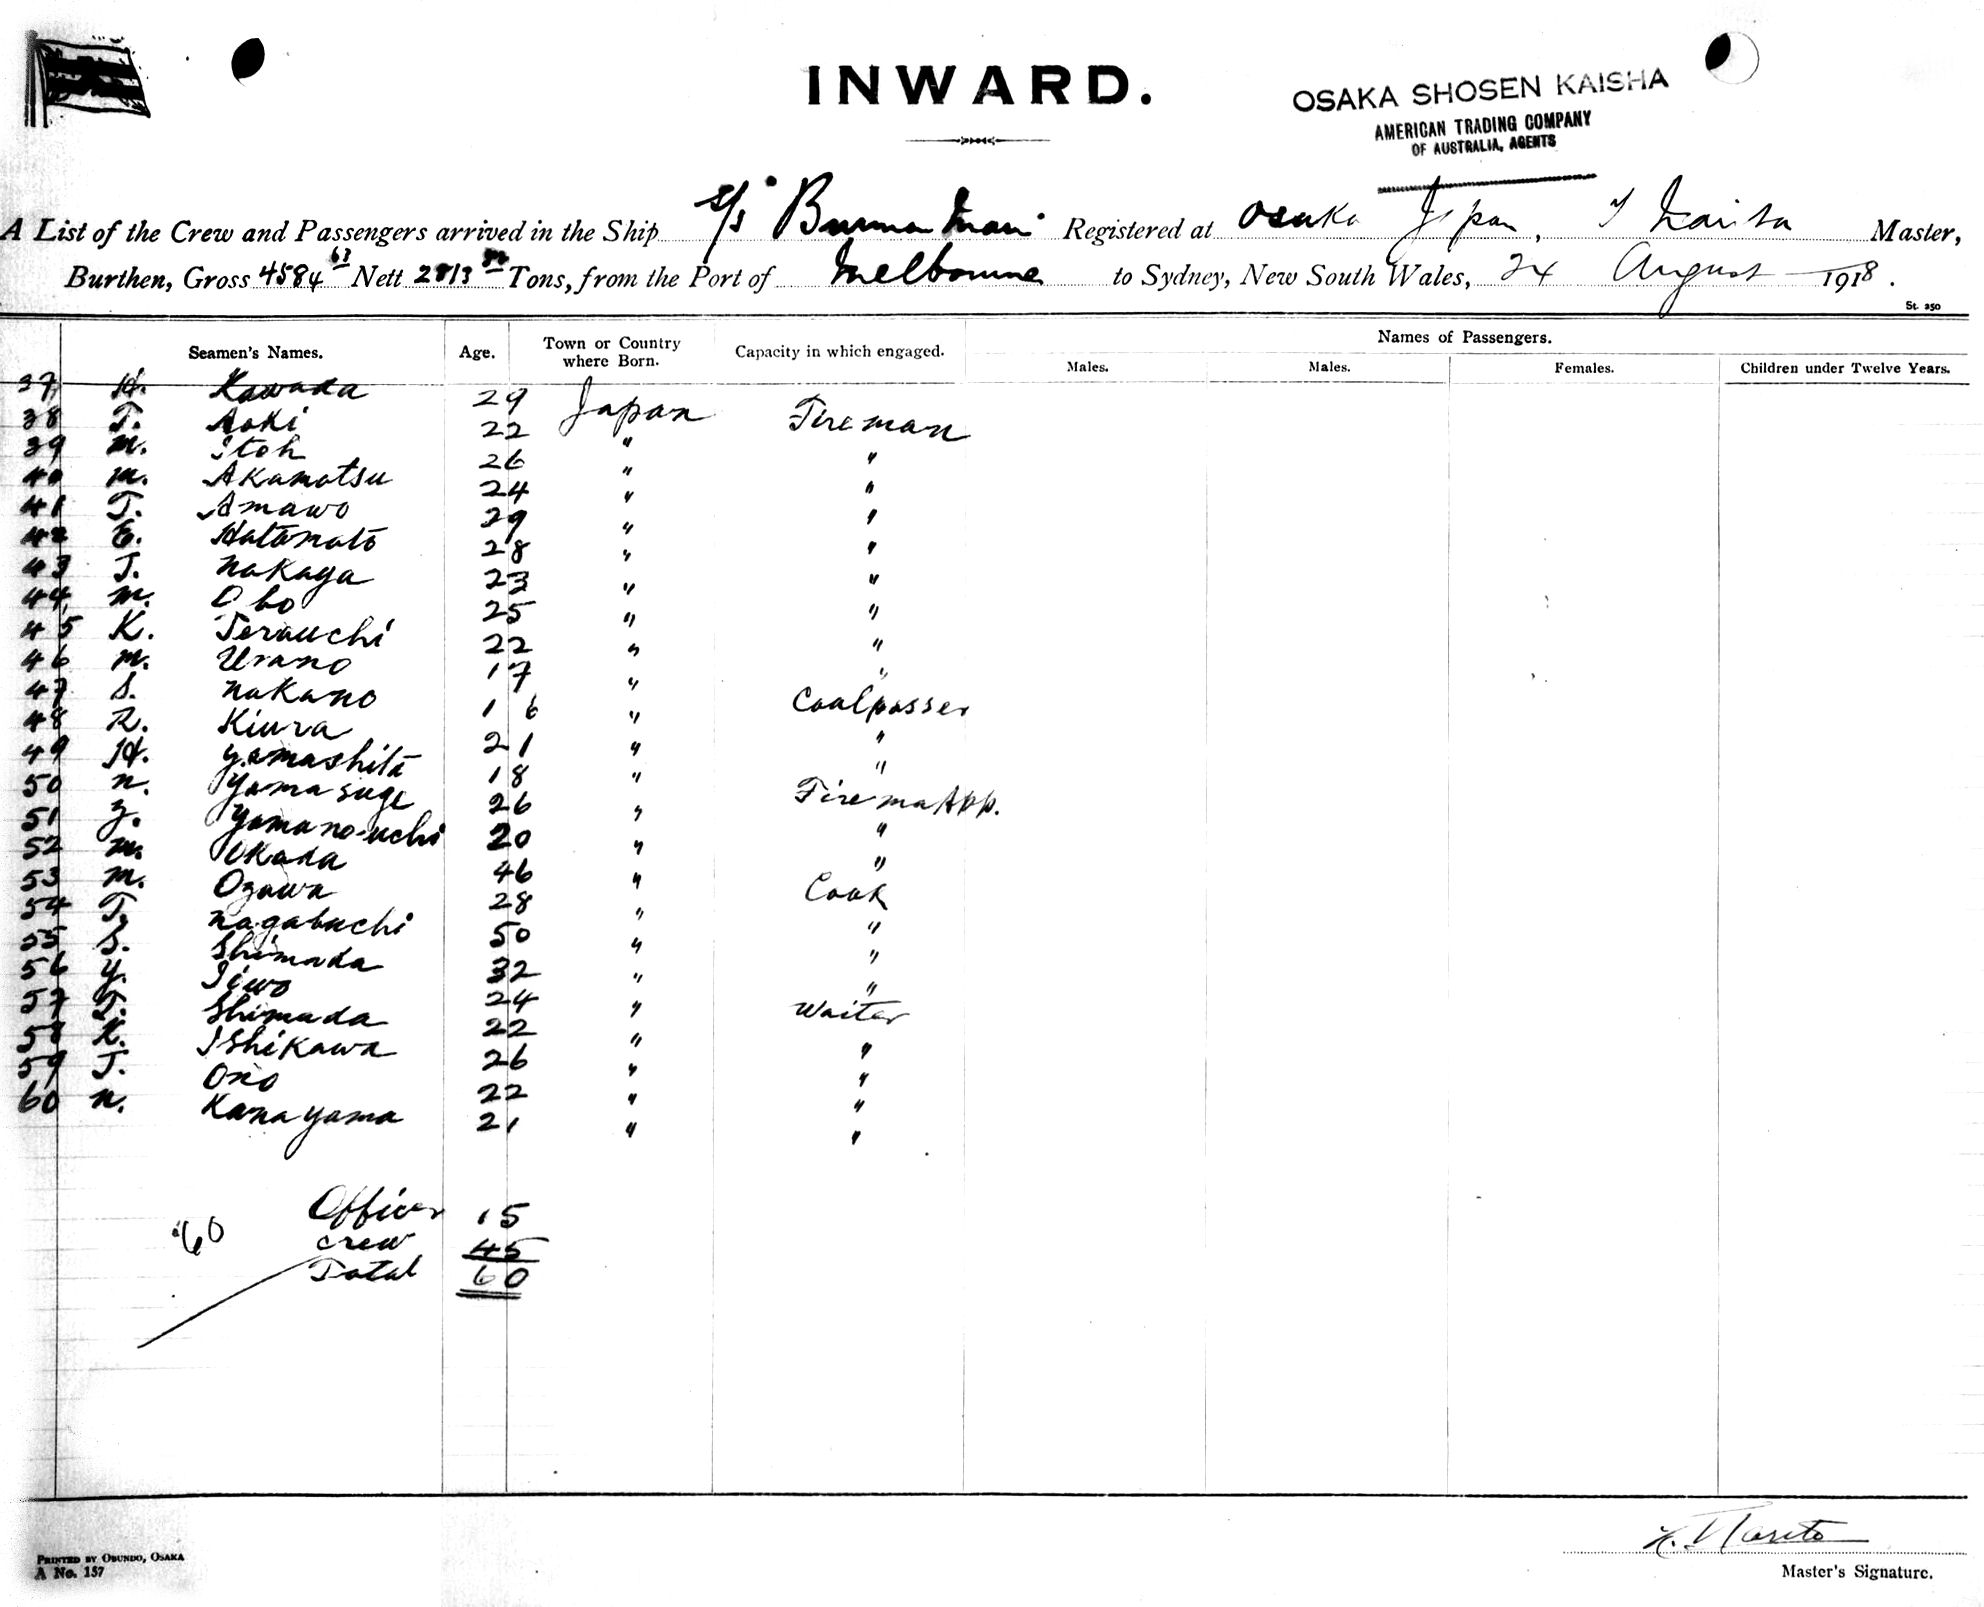 INWARD.
OSAKA SHOSEN KAISHA
AMERICAN TRADING COMPANY
OF AUSTRALIA, AGENTS
A List of the Crew and Passengers arrived in the Ship s/s Burma Maru Registered at Osaka Japan, Master,
Burthen, Gross 4584 63 Nett 2813 Tons, from the Port of Melbourne to Sydney, New South Wales, 24 August 1918.
St. 250
Seamen's Names. Age. Town or Country where Born. Capacity in which engaged. Names of Passengers.
Males. Males. Females. Children under Twelve Years.
37 H. Kawada 29 Japan Fireman
38 T. Aoki 22 " "
39 M. Itoh 26 " "
40 M. Akamatsu 24 " "
41 T. Amawo 29 " "
42 E. Hatamoto 28 " "
43 J. Nakaya 23 " "
44 M. Obo 25 " "
45 K. Terauchi 22 " "
46 M. Urano 17 " "
47 S. Nakano 16 " Coalpasser
48 R. Kiura 21 " "
49 H. Yamashita 18 " "
50 N. Yamasuge 26 " Firema App.
51 Z. Yamano-uchi 20 " "
52 M. Okada 46 " "
53 M. Ozawa 28 " Cook
54 T. Nagabuchi 50 " "
55 S. Shimada 32 " "
56 Y. Iiwo 24 " "
57 T. Shimada 22 " Waiter
58 K. Ishikawa 26 " "
59 J. Ono 22 " "
60 N. Kanayama 21 " "
Officer 15
60 crew 45
Total 60
PRINTED BY OBUNDO, OSAKA
A No. 157
Master's Signature.